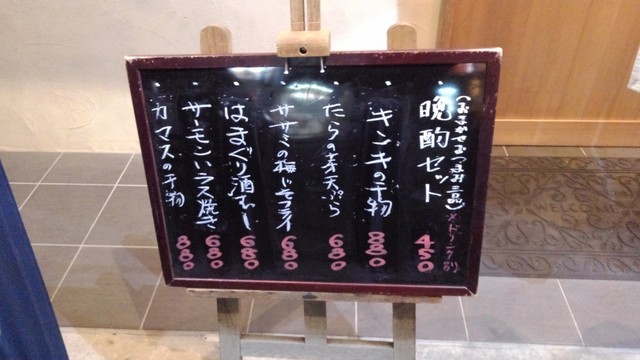 (おまかせおつまみ三品)
晩酌セット
メドリンク別
450
キンキの干物
880
たらの芽天ぷら
680
ササミの梅じそフライ
680
はまぐり酒むし
680
サーモンハラス焼き
680
カマスの干物
880